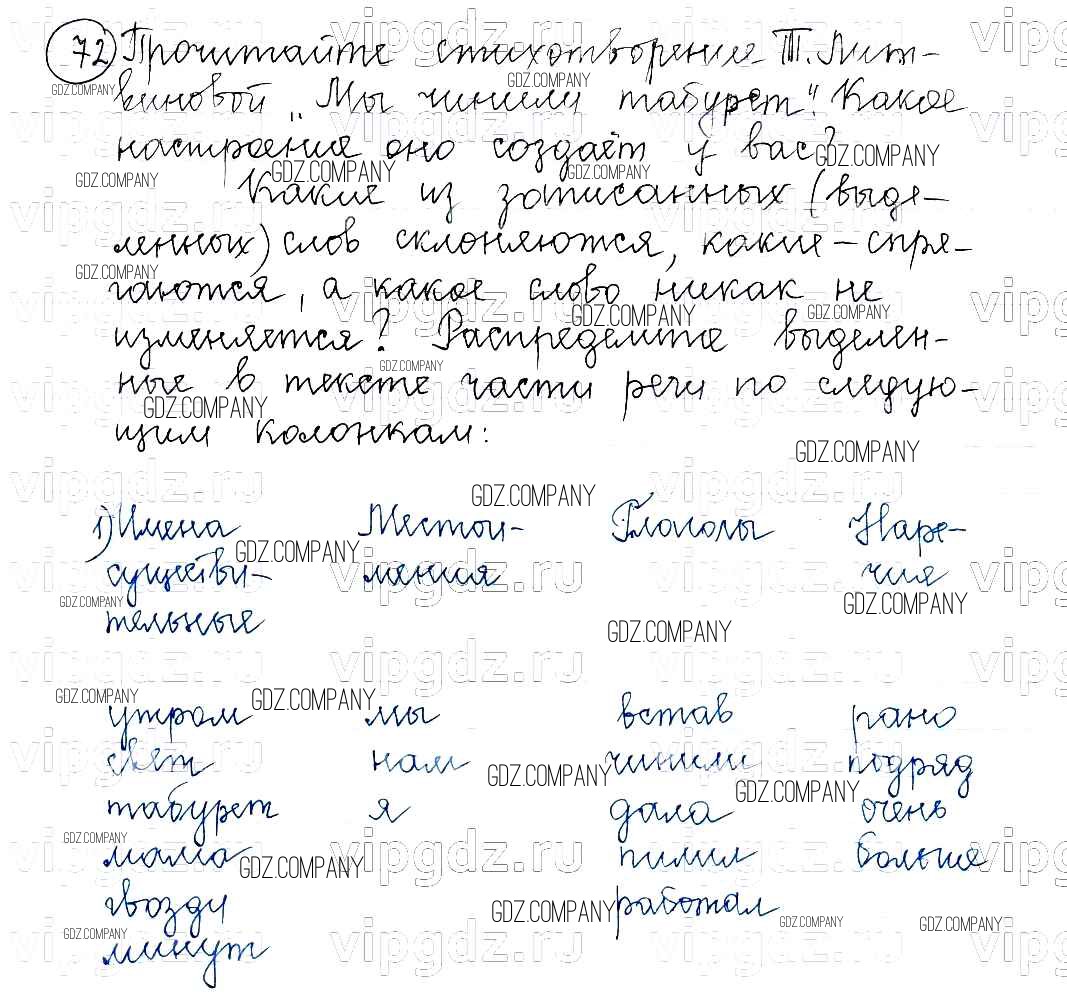 72 Прочитайте стихотворение Т. Лит-
виновой "Мы чинили табурет". Какое
настроение оно создаёт у вас?
Какие из записанных (выде-
ленных) слов склоняются, какие - спря-
гаются, а какое слово никак не
изменяется? Распределите выделен-
ные в тексте части речи по следую-
щим колонкам:
1) Имена Местои- Глаголы Наре-
существи- мения чия
тельные
утром мы встав рано
свет нам чинили подряд
табурет я дала очень
мама пилил больше
гвозди работал
минут
GDZ.COMPANY
vipgdz.ru